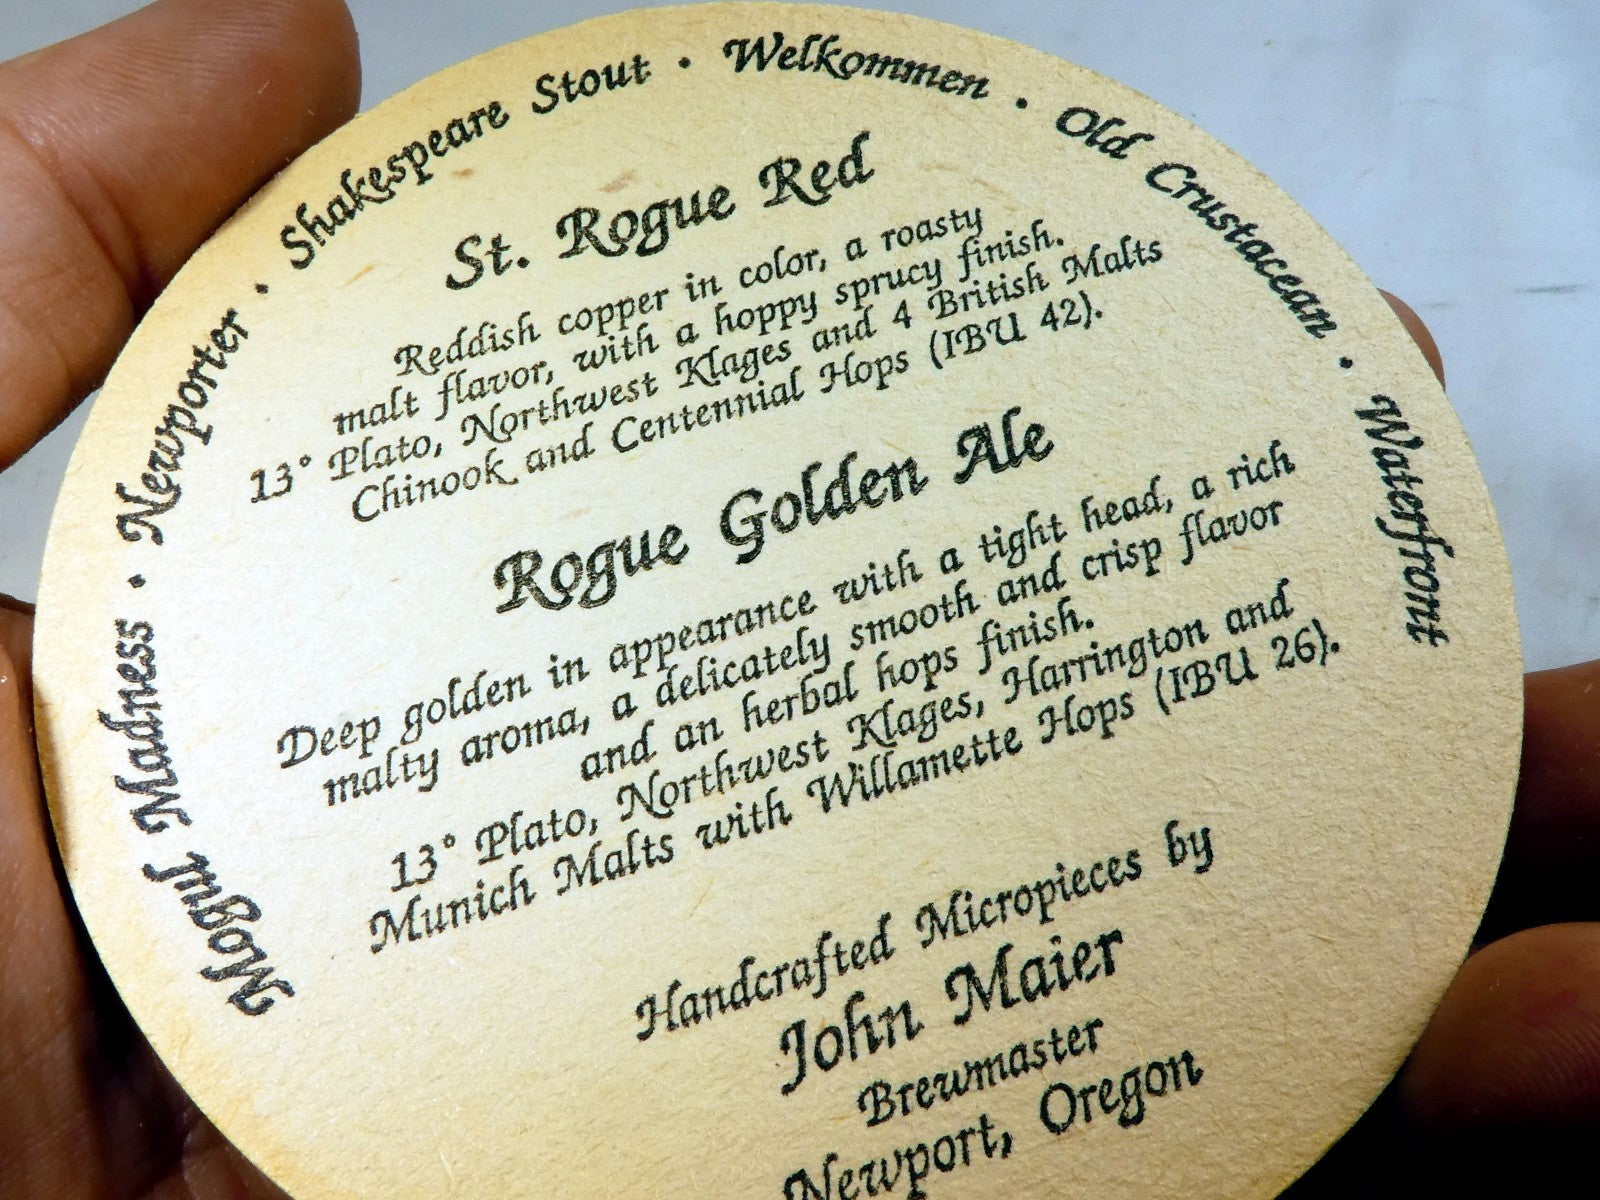 Mogul Madness • Newporter • Shakespeare Stout • Welkommen • Old Crustacean • Waterfront
St. Rogue Red
Reddish copper in color, a roasty
malt flavor, with a hoppy sprucy finish.
13° Plato, Northwest Klages and 4 British Malts
Chinook and Centennial Hops (IBU 42).
Rogue Golden Ale
Deep golden in appearance with a tight head, a rich
malty aroma, a delicately smooth and crisp flavor
and an herbal hops finish.
13° Plato, Northwest Klages, Harrington and
Munich Malts with Willamette Hops (IBU 26).
Handcrafted Micropieces by
John Maier
Brewmaster
Newport, Oregon